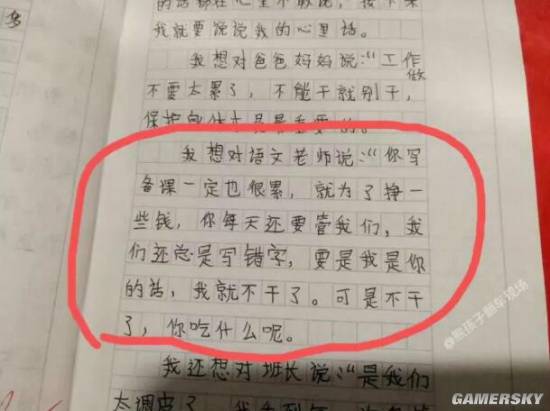 的话都在心里不敢说，接下来
我就要说说我的心里话。
我想对爸爸妈妈说：“工作
不要太累了，不能干就别干，
做
保护身体才是最重要的。
我想对语文老师说：“你写
备课一定也很累，就为了挣一
些钱，你每天还要管我们，我
们还总是写错字，要是我是你
的话，我就不干了。可是不干
了，你吃什么呢。
我还想对班长说：“是我们
太调皮了，我
@熊孩子翻车现场
GAMERSKY